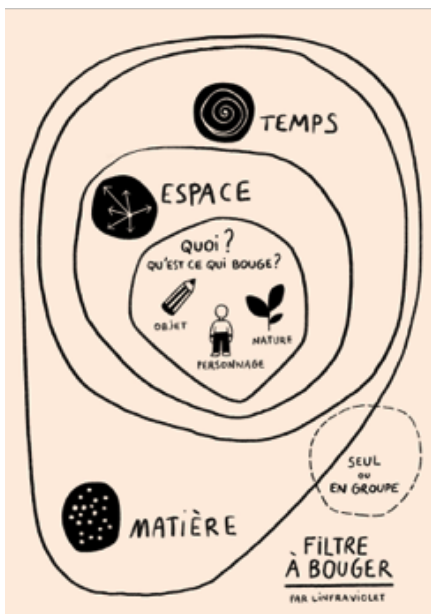 TEMPS
ESPACE
QUOI ?
QU'EST CE QUI BOUGE ?
OBJET
NATURE
PERSONNAGE
SEUL
OU
EN GROUPE
MATIÈRE
FILTRE
À BOUGER
PAR L'INFRAVIOLET